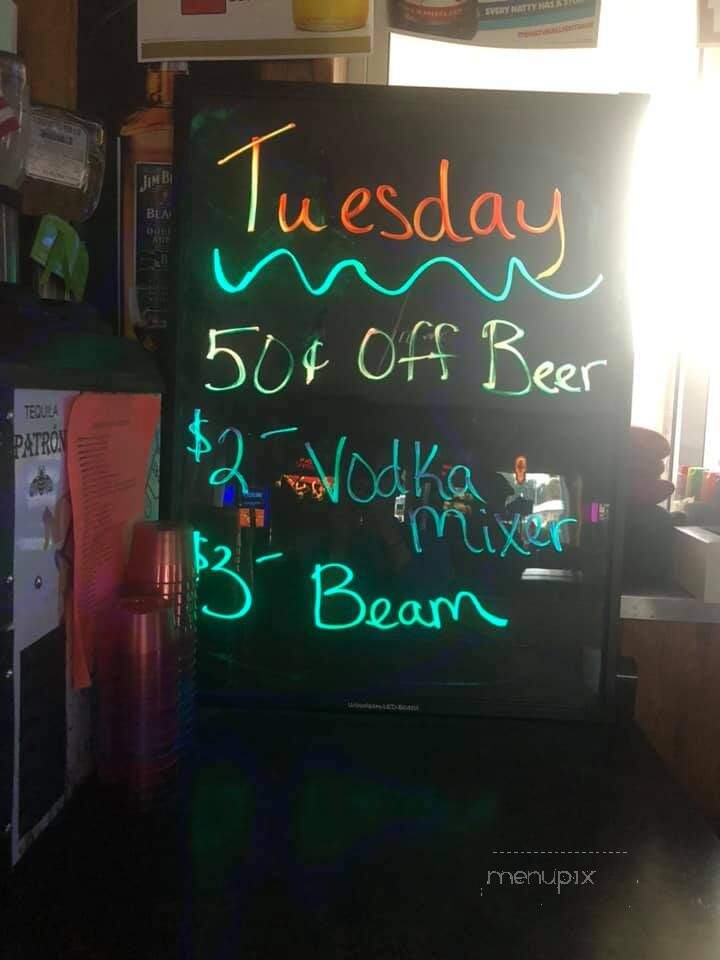 EVERY NATTY HAS A STORY
JIM B
BLA
Tuesday
50¢ Off Beer
$2- Vodka
mixer
$3- Beam
TEQUILA
PATRÓN
menupix